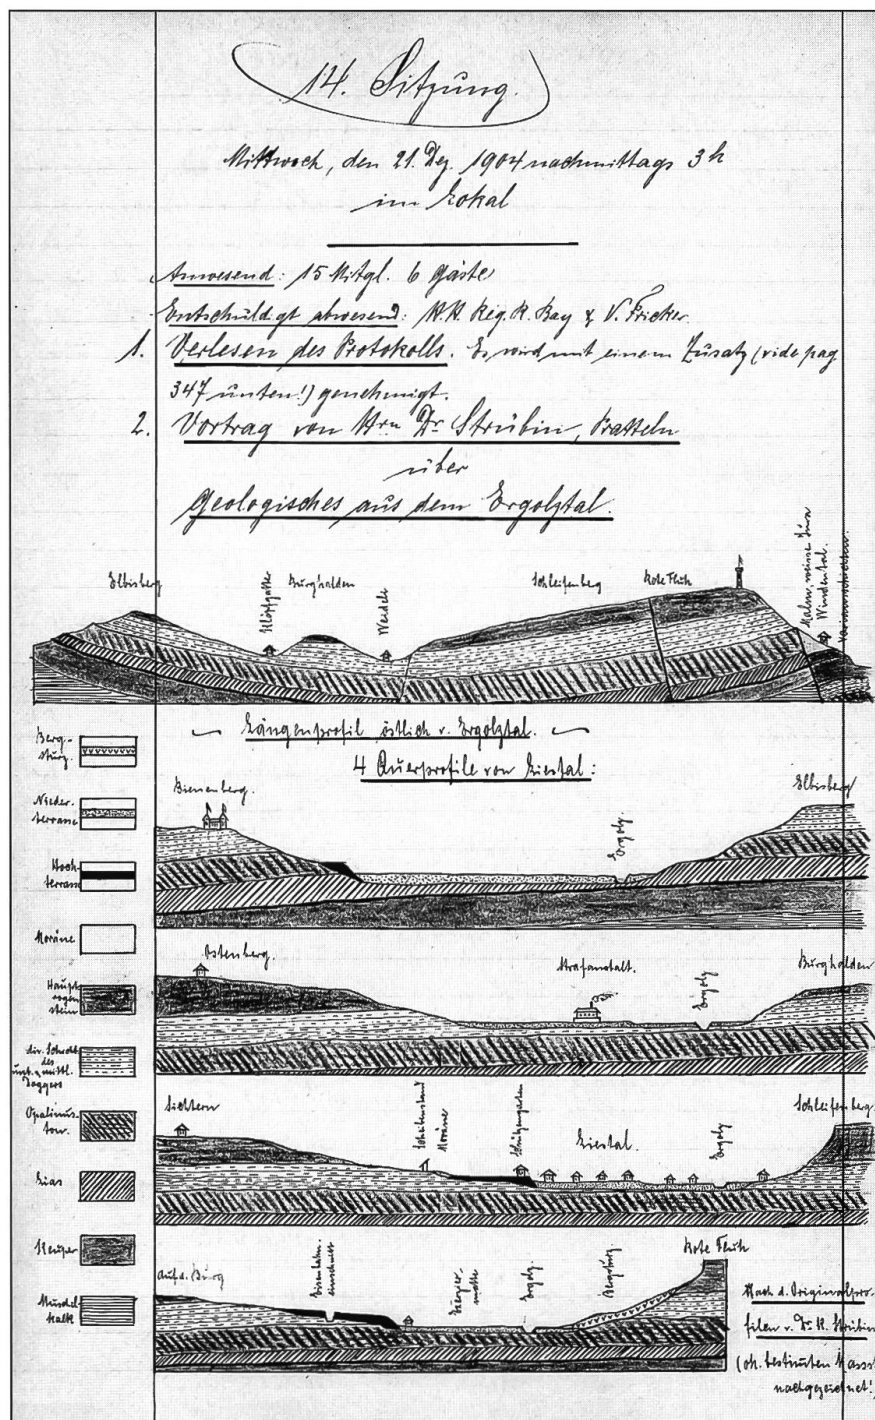 14. Sitzung.
Mittwoch, den 21. Dez. 1904 nachmittags 3 h
im Lokal
Anwesend: 15 Mitgl. 6 Gäste
Entschuldigt abwesend: H.H. Reg. R. Bay & V. Fricker.
1. Verlesen des Protokolls. Es wird mit einem Zusatz (vide pag
347 unten!) genehmigt.
2. Vortrag von Hrn Dr Strübin, Pratteln
über
Geologisches aus dem Ergolztal.
Elbisberg
Burghalden
Weideli
Schleifenberg
Rote Fluh
Malm, weisser Jura
Windental.
Variansschichten.
Längenprofil östlich v. Ergolztal.
4 Querprofile von Liestal:
Berg-
sturz.
Nieder-
terrasse
Hoch-
terrasse
Moräne
Haupt
rogen
stein
div. Schicht
des
unt. u. mittl.
Doggers
Opalinus-
ton.
Lias
Keuper
Muschel-
kalk
Bienenberg.
Ergolz.
Elbisberg
Ostenberg.
Strafanstalt.
Ergolz
Burghalden
Sichtern
Scheibenstand
Moräne
Schützengarten
Liestal.
Ergolz
Schleifenberg.
Auf d. Burg
Eisenbahn-
einschnitt
Ergolz.
Bergsturz.
Rote Fluh
Nach d. Originalpro-
filen v. Dr. K. Strübin
(oh. bestimten Masst
nachgezeichnet!)